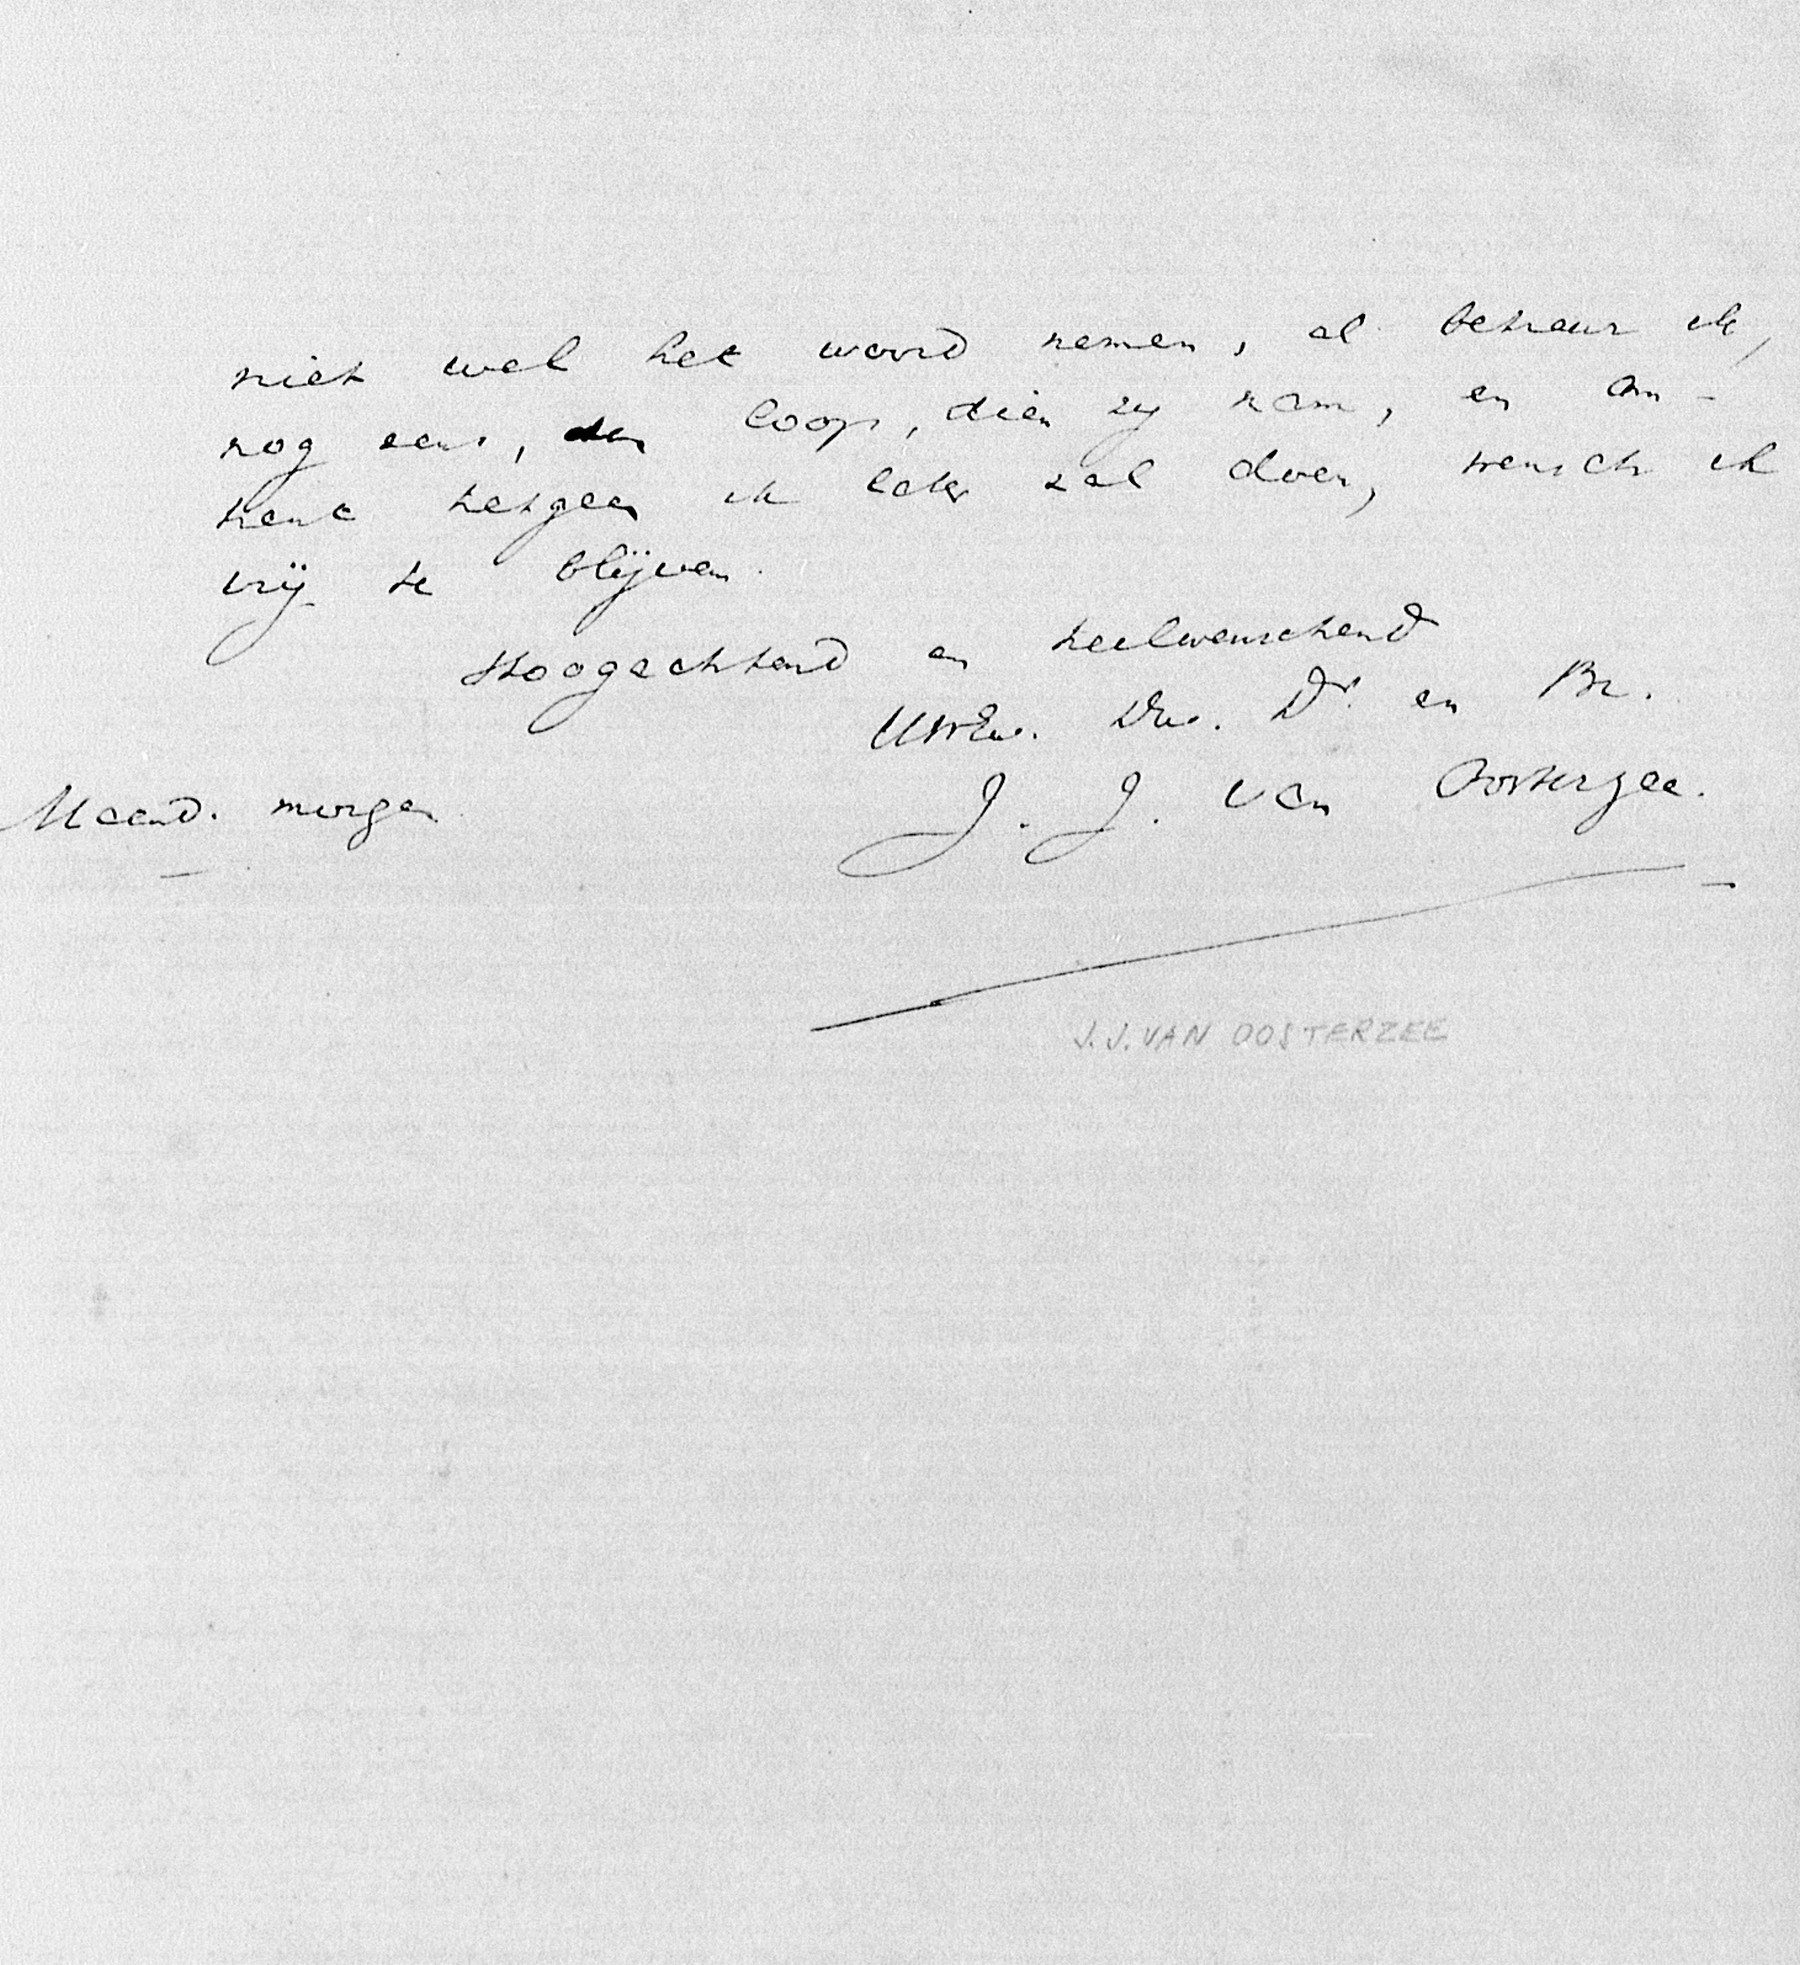 niet wel het woord nemen, al betreur ik,
nog eens, den loop, dien zy nam, en om-
trent hetgeen ik later zal doen, wensch ik
vrij te blijven.
Hoogachtend en heilwenschend
UWEw. Dw. Dr. en Br.
Maand. morgen
J. J. van Oosterzee.
J.J. VAN OOSTERZEE